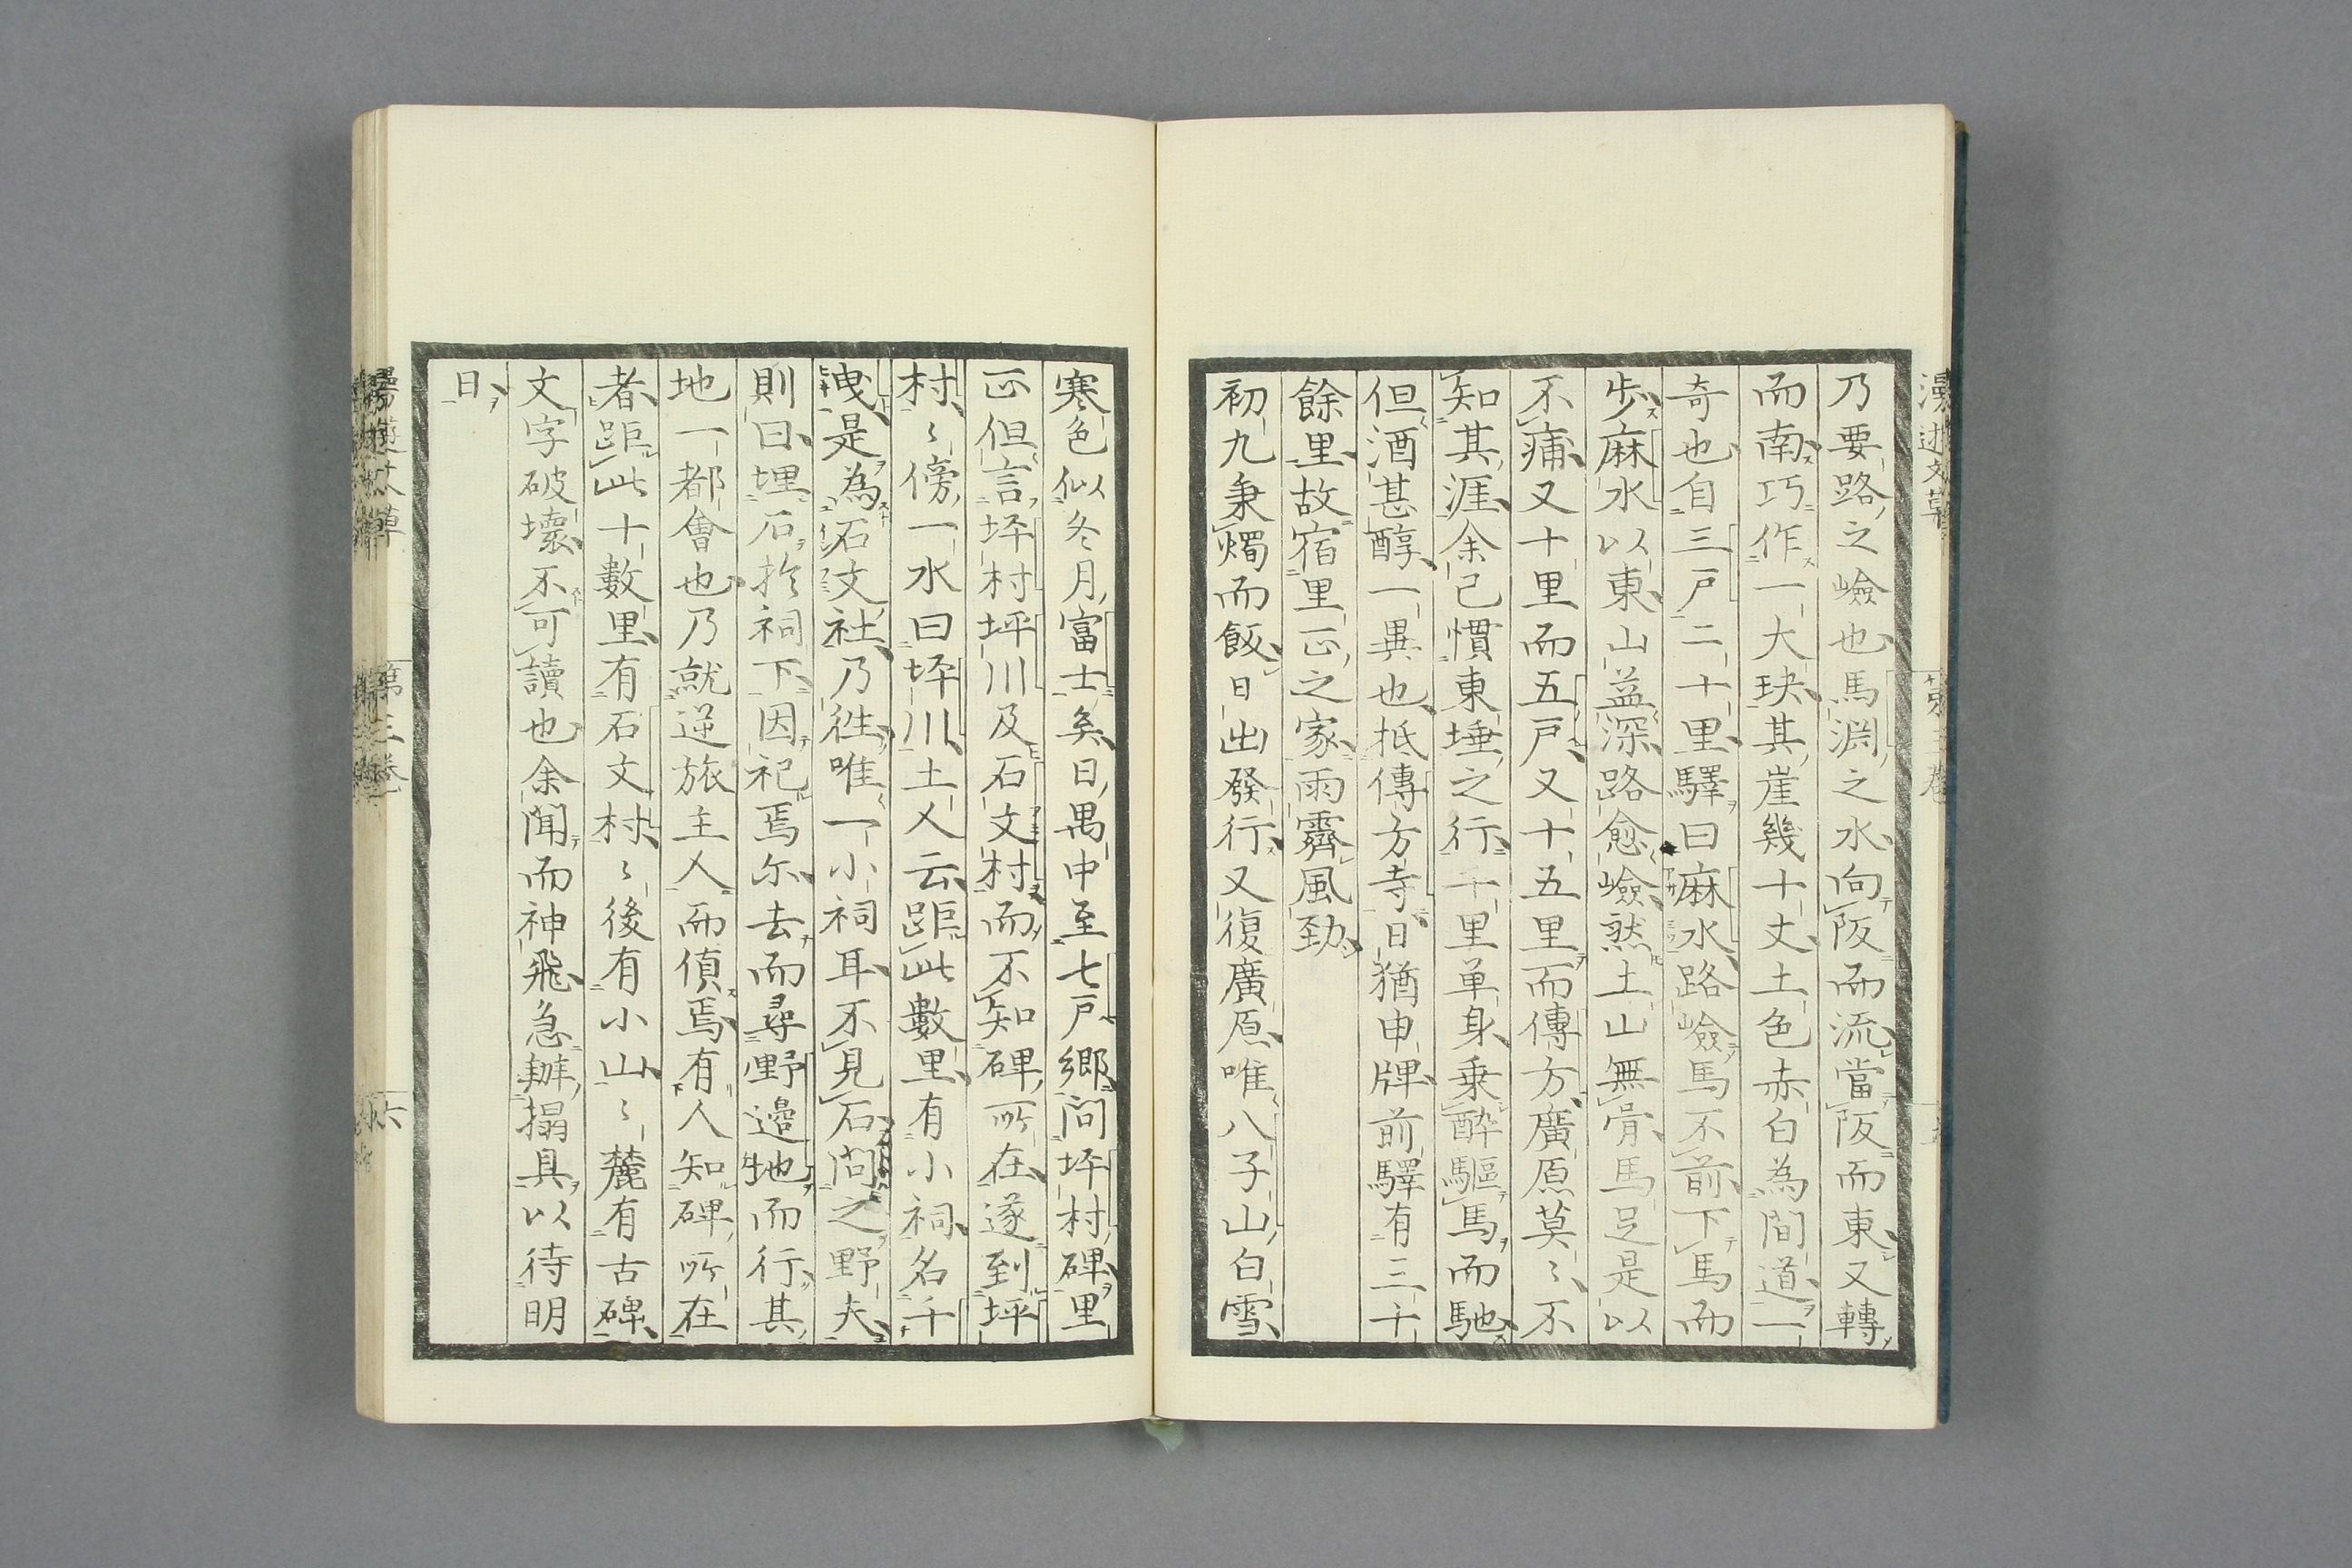 乃要路之嶮也馬渕之水向阪而流當阪而東又轉
而南巧作一大玦其崖幾十丈土色赤白為間道一
奇也自三戸二十里驛曰麻水路嶮馬不前下馬而
步麻水以東山益深路愈嶮然土山無骨馬足是以
不痡又十里而五戸又十五里而傳方廣原莫〻不
知其涯余已慣東埵之行千里单身乗醉驅馬而馳
但酒甚醇一異也抵傳方寺日猶申牌前驛有三十
餘里故宿里正之家雨霽風勁
初九秉燭而飯日出發行又復廣原唯八子山白雪
寒色似冬月富士矣日禺中至七戸郷问坪村碑里
正但言坪村坪川及石文村而不知碑所在遂到坪
村〻傍一水曰坪川土人云距此數里有小祠名千
曳是為石文社乃徃唯一小祠耳不見石問之野夫
則曰埋石於祠下因祀焉尓去而尋野邊地而行其
地一都會也乃就逆旅主人而偵焉有人知碑所在
者距此十數里有石文村〻後有小山〻麓有古碑
文字破壞不可讀也余聞而神飛急辦搨具以待明
日
第三卷
六